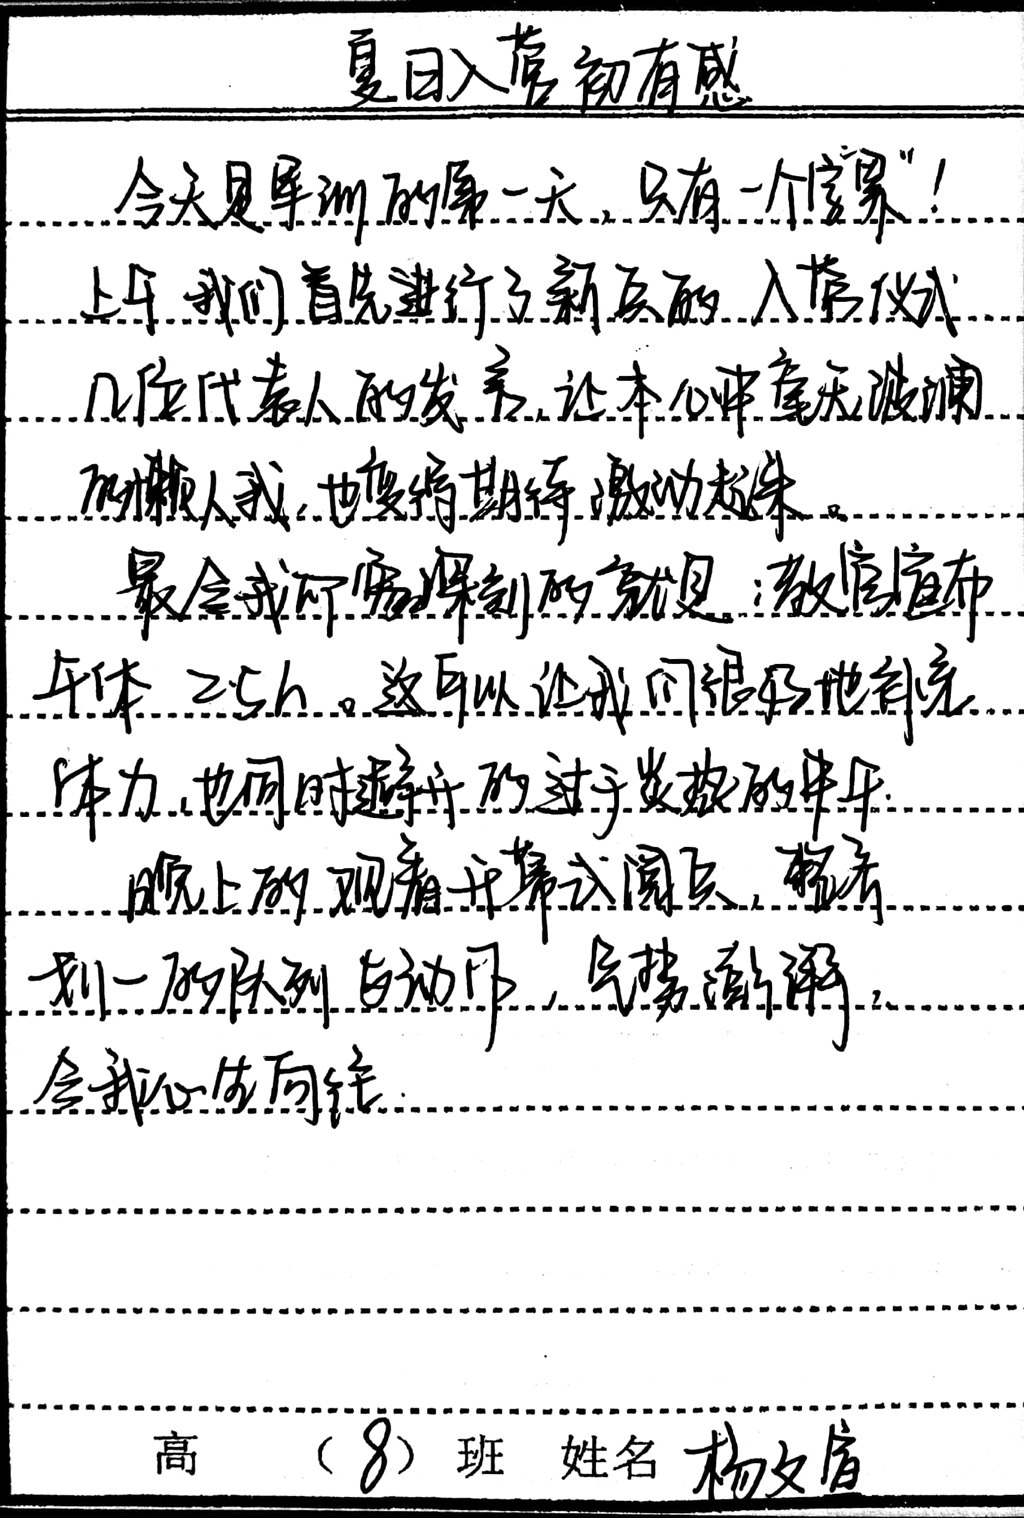 夏日入营初有感
今天是军训的第一天，只有一个字“累”！
上午我们首先进行了新兵的入营仪式
几位代表人的发言，让本心中毫无波澜
的懒人我，也变得期待激动起来。
最令我印象深刻的就是：教官宣布
午休2.5h。这可以让我们很好地补充
体力，也同时避开的过于炎热的中午.
晚上的观看开幕式阅兵，整齐
划一的队列与动作，气势澎湃，
令我心生向往.
高 （8）班 姓名 杨文